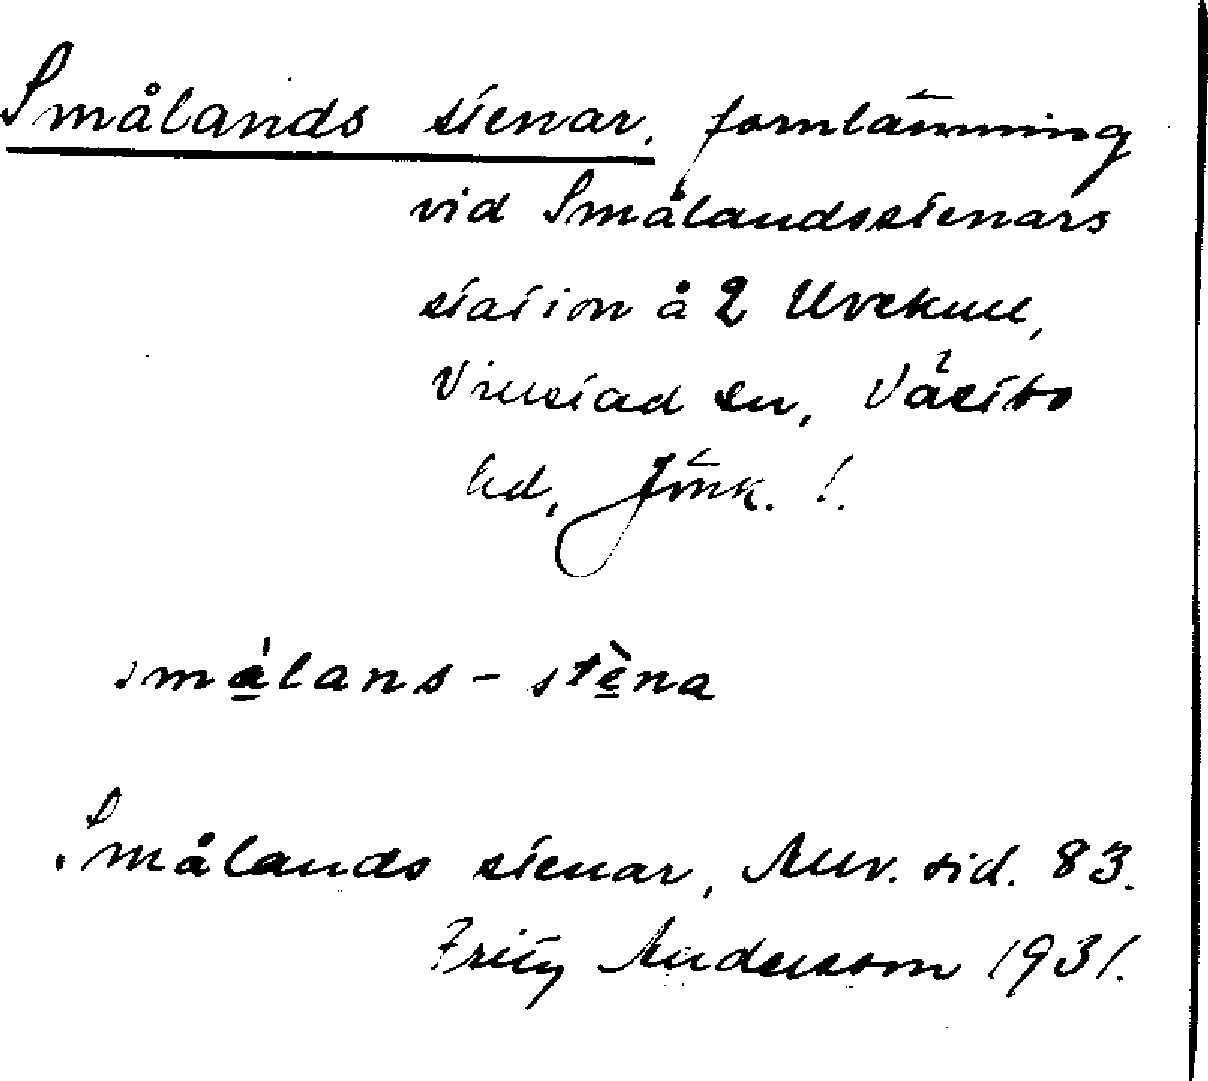 Smålands stenar, fornlämning
vid Smålandsstenars
station å 2 Uvekull,
Villstad sn, Västbo
hd, Jönk. l.
smålans - stèna
Smålands stenar, Muv. sid. 83.
Fritz Andersson 1931.